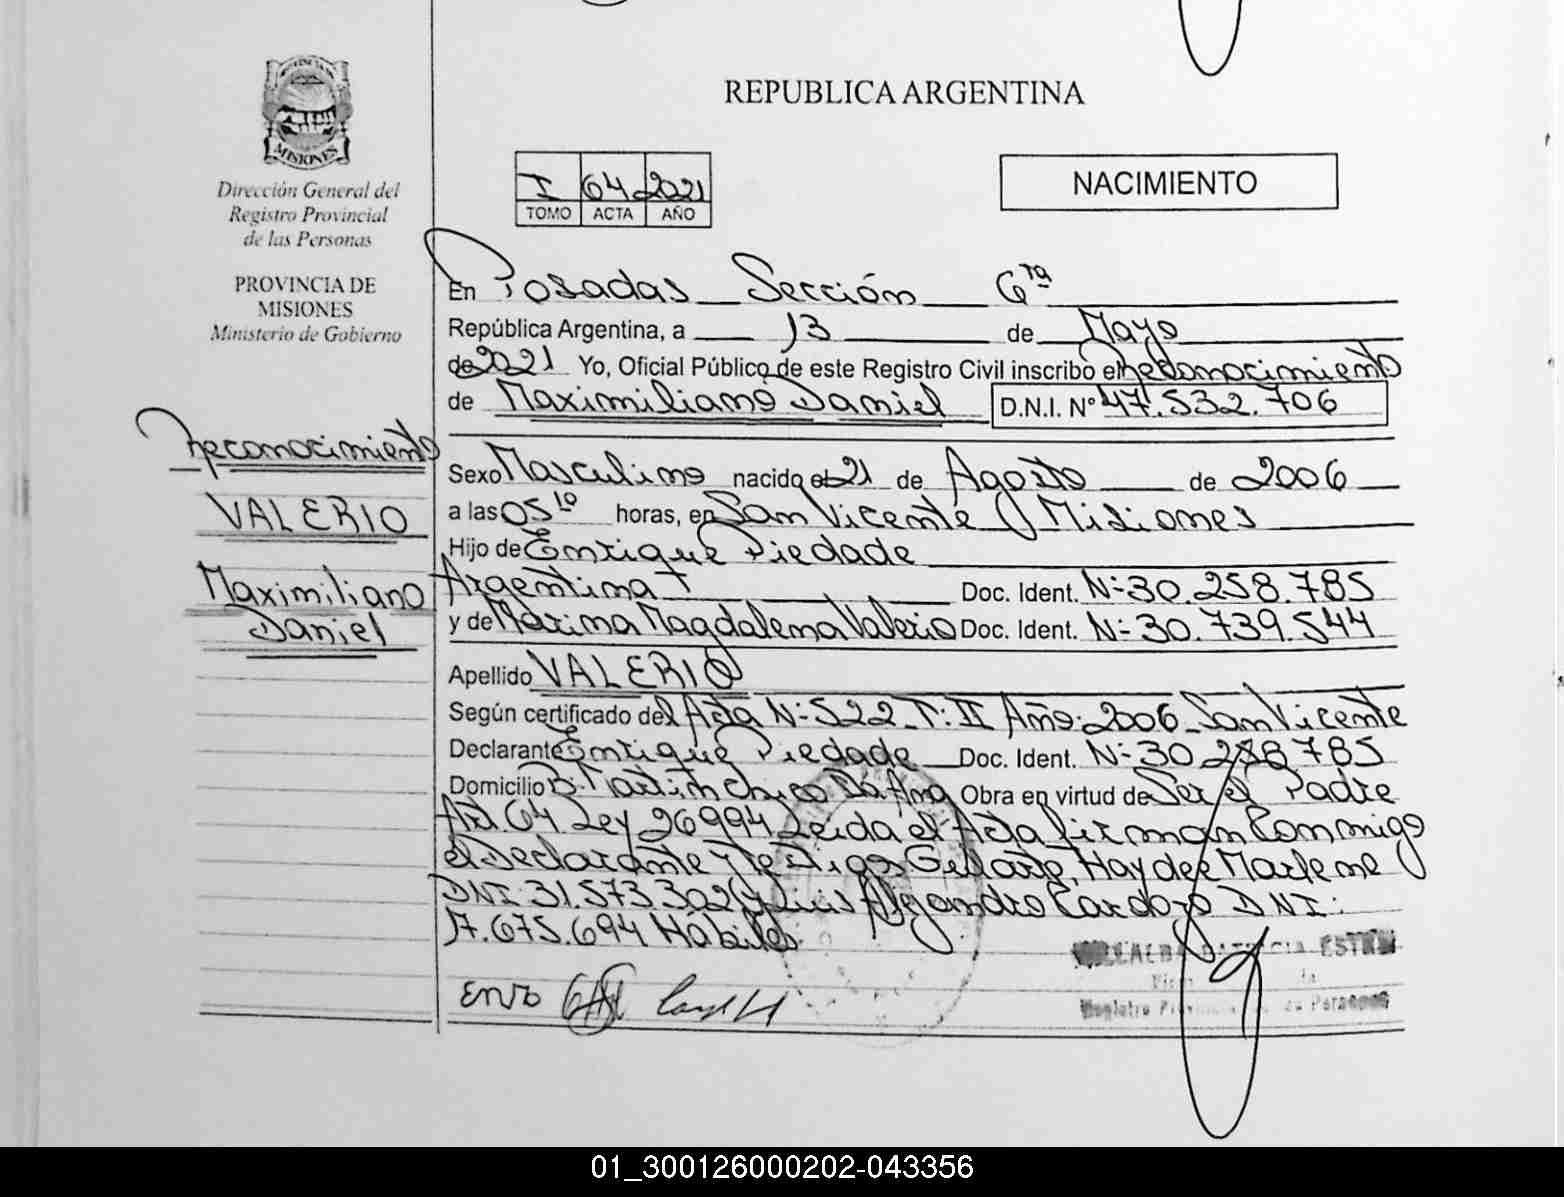 REPUBLICA ARGENTINA
PROVINCIA DE
MISIONES
Dirección General del
Registro Provincial
de las Personas
PROVINCIA DE
MISIONES
Ministerio de Gobierno
I 64 2021
TOMO ACTA AÑO
NACIMIENTO
En Posadas Sección 6ta
República Argentina, a 13 de Mayo
de 2021 Yo, Oficial Público de este Registro Civil inscribo el Reconocimiento
de Maximiliano Daniel D.N.I. Nº 47.532.706
Reconocimiento
VALERIO
Maximiliano
Daniel
Sexo Masculino nacido el 21 de Agosto de 2006
a las 05 10 horas, en San Vicente Misiones
Hijo de Enrique Piedade
Argentina Doc. Ident. N: 30.258.785
y de Marina Magdalena Valerio Doc. Ident. N: 30.739.544
Apellido VALERIO
Según certificado del Acta N: 522 T: II Año: 2006 San Vicente
Declarante Enrique Piedade Doc. Ident. N: 30.258.785
Domicilio B. Martin Chico Obra en virtud de Ser el Padre
Art. 64 Ley 26994 Leida el Acta firman Conmigo
el Declarante y Testigos Haydee Marlene
DNI: 31.573.302 y Luis Alejandro Cardozo DNI:
17.675.694 Hábiles.
01_300126000202-043356